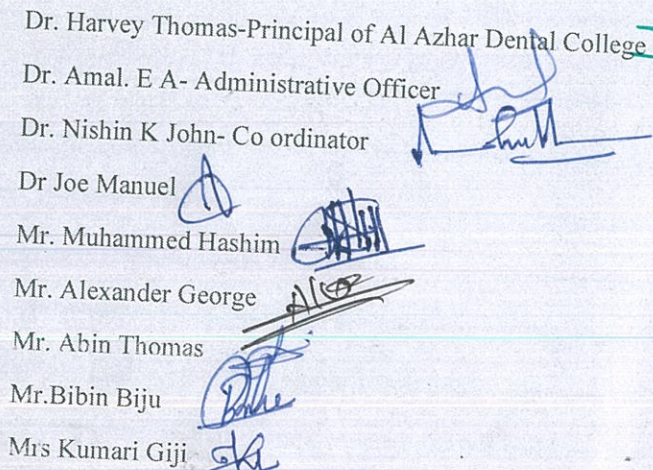 Dr. Harvey Thomas-Principal of Al Azhar Dental College
Dr. Amal. E A- Administrative Officer
Dr. Nishin K John- Co ordinator
Dr Joe Manuel
Mr. Muhammed Hashim
Mr. Alexander George
Mr. Abin Thomas
Mr.Bibin Biju
Mrs Kumari Giji